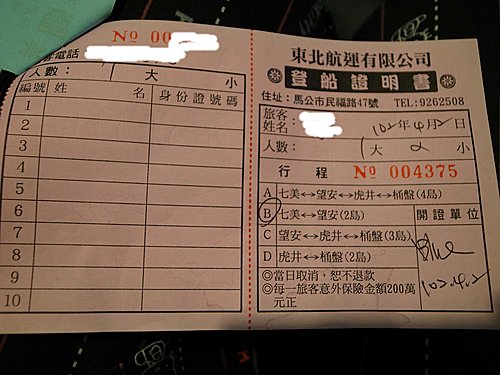 No 00
客電話
人數： 大 小
編號 姓 名 身份證號碼
1
2
3
4
5
6
7
8
9
10
東北航運有限公司
登船證明書
住址：馬公市民福路47號 TEL:9262508
旅客：
姓名：
102年4月2日
人數： 1大 2小
行程 No 004375
A 七美↔望安↔虎井↔桶盤(4島)
B 七美↔望安(2島)
開證單位
C 望安↔虎井↔桶盤(3島)
D 虎井↔桶盤(2島)
Blue
102.4.2
◎當日取消，恕不退款
◎每一旅客意外保險金額200萬
元正